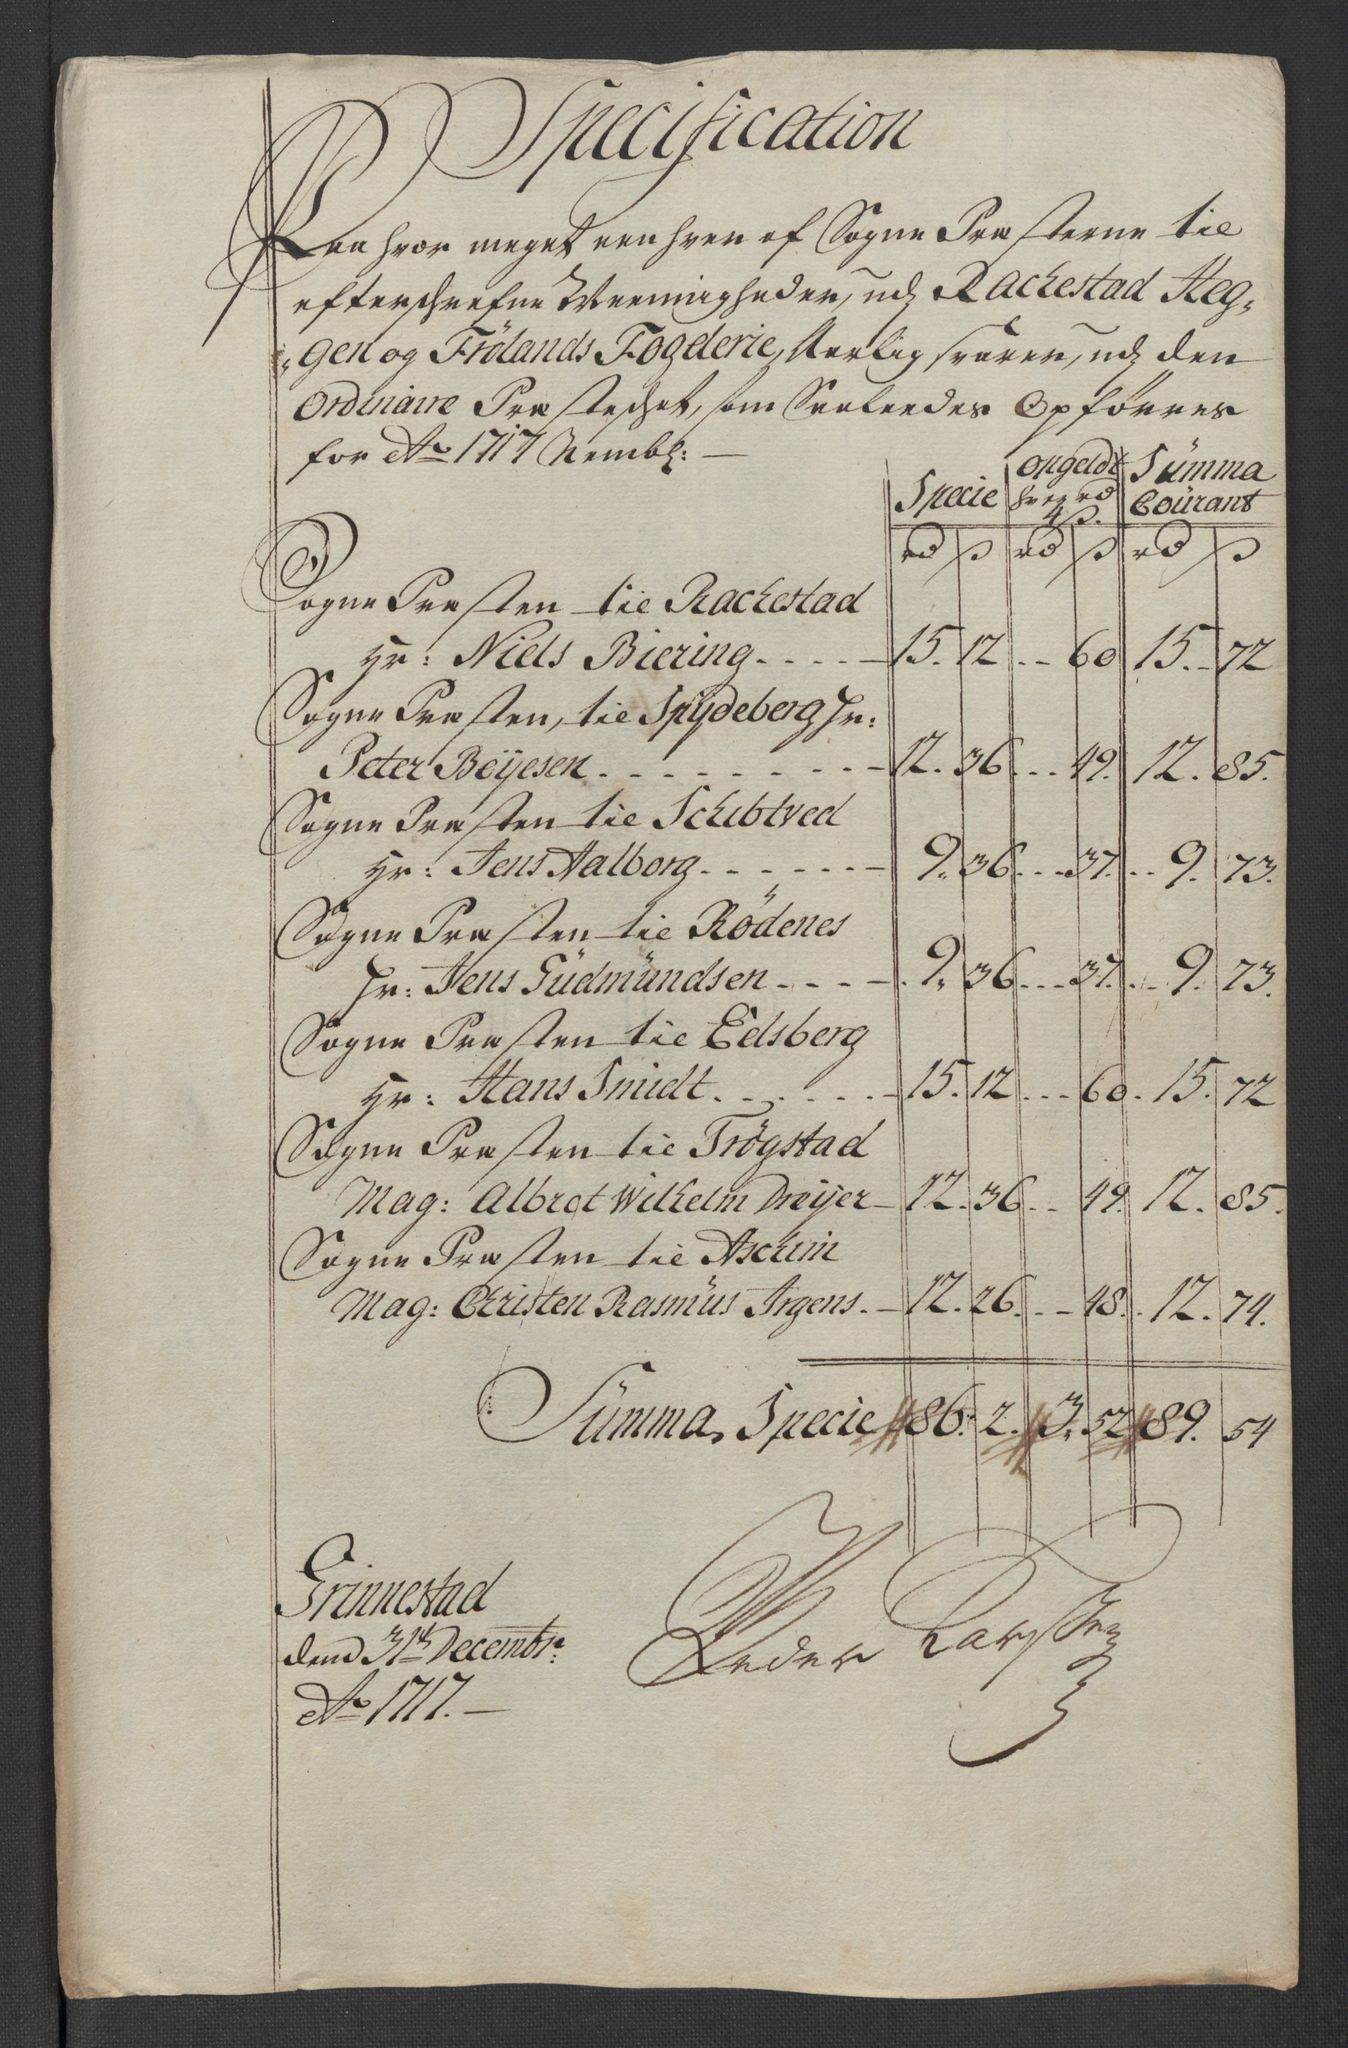 Specification
Paa hvor meget een hver af Sogne Præsterne til
efterschrefne Meenigheder, udj Rachestad Heg-
gen og Frölands Fogderie, Aarlig svarer, udj den
Ordinaire Præsteschat, som Saaleedes Opförres
for Ao 1717 Nembl: —
Specie Opgeldt hver rd 4 ß. Summa Courant
rd ß rd ß rd ß
Sogne Præsten til Rachestad
Hr: Niels Biering. . . . . 15. 12 . . 60 15. 72
Sogne Præsten, til Spydeberg Hr:
Peter Beÿesen. . . . . . . . 12. 36 . . . 49. 12. 85.
Sogne Præsten til Schibtved
Hr: Jens Aalborg. . . . . . 9. 36 . . . 37. . . 9. 73.
Sogne Præsten til Rödenes
Hr: Jens Güdmündsen . . . . 9. 36 . . . 37. . . 9. 73.
Sogne Præsten til Edsberg
Hr: Hans Smidt. . . . . . 15. 12 . . . 60. 15. 72
Sogne Præsten til Trögstad
Mag: Albret Wilhelm Dreÿer 12. 36 . . 49. 12. 85.
Sogne Præsten til Aschim
Mag: Christen Rasmüs Argens. 12. 26. . . 48. . 12. 74.
Sümma, Specie 86. 2. 3. 52 89. 54
Grinnestad
den 31te Decembr:
Ao 1717. —
Peder Larssen